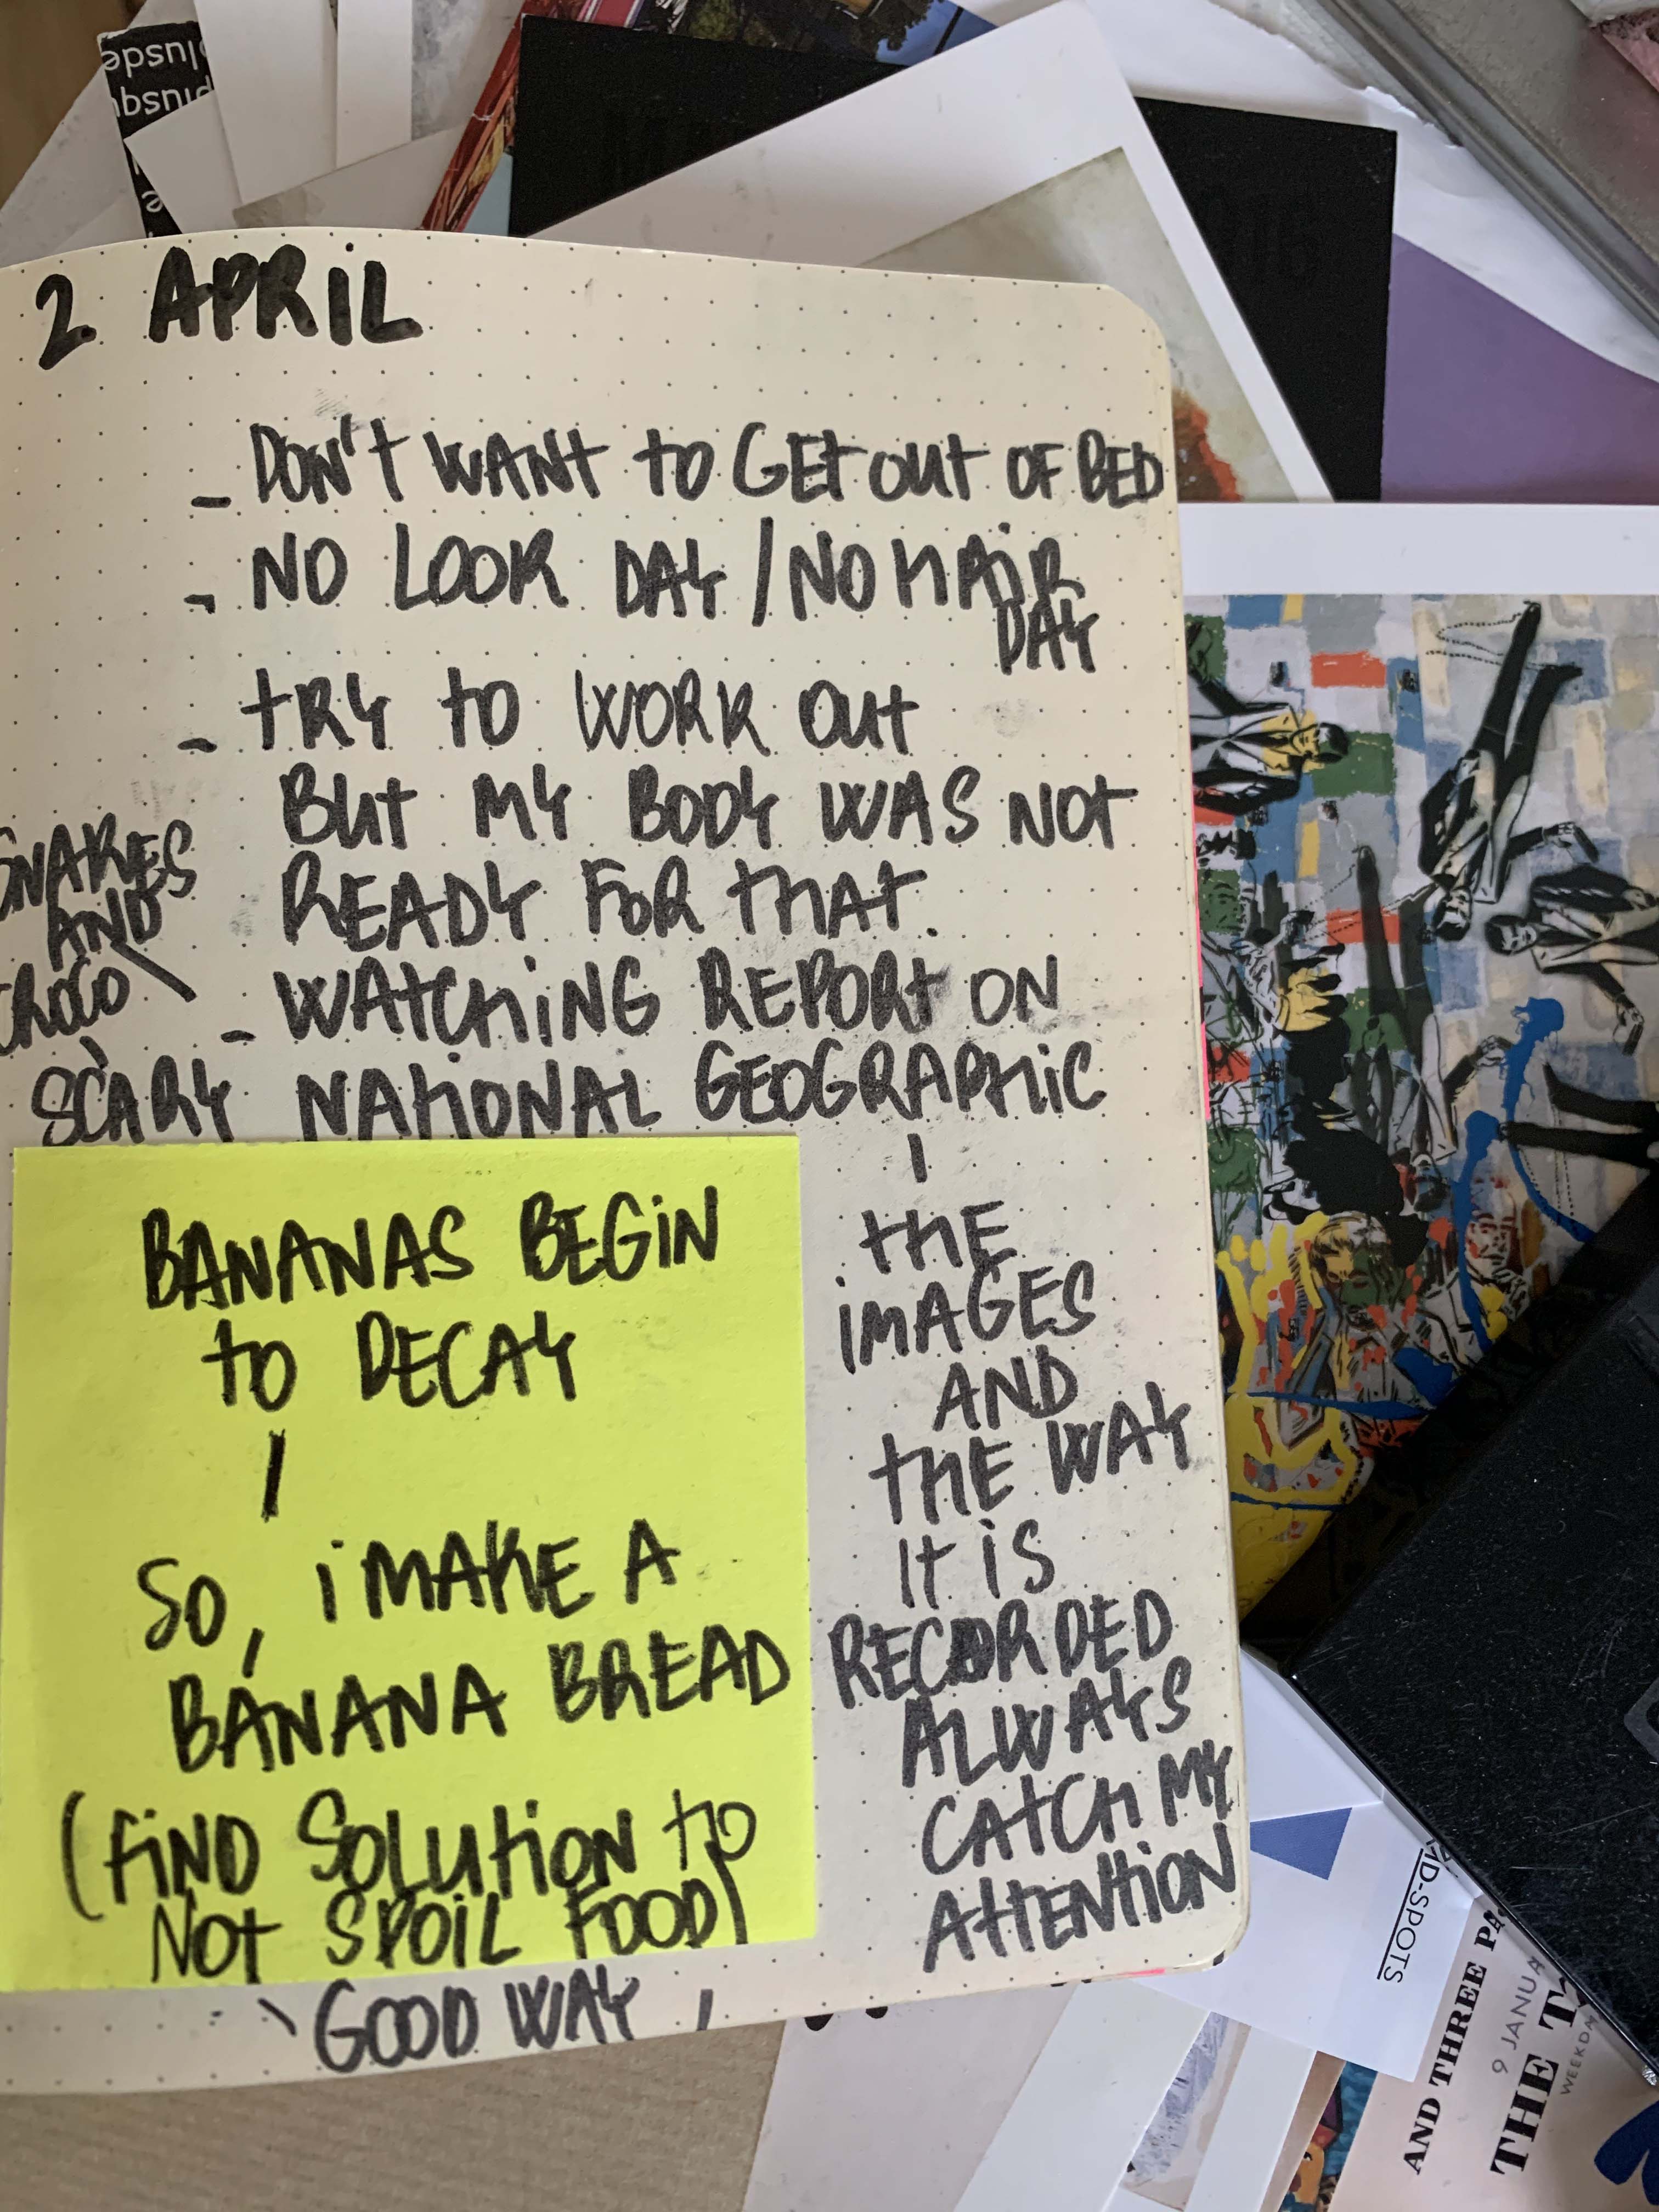 2 APRIL
- DON'T WANT TO GET OUT OF BED
- NO LOOK DAY / NO HAIR
DAY
- TRY TO WORK OUT
BUT MY BODY WAS NOT
READY FOR THAT.
- WATCHING REPORT ON
NATIONAL GEOGRAPHIC
SNAKES
AND
CROCO
SCARY
THE
IMAGES
AND
THE WAY
IT IS
RECORDED
ALWAYS
CATCH MY
ATTENTION
BANANAS BEGIN
TO DECAY
SO, I MAKE A
BANANA BREAD
(FIND SOLUTION TO
NOT SPOIL FOOD)
GOOD WAY
D-SPOTS
AND THREE
9 JANUA
THE
WEEKDA